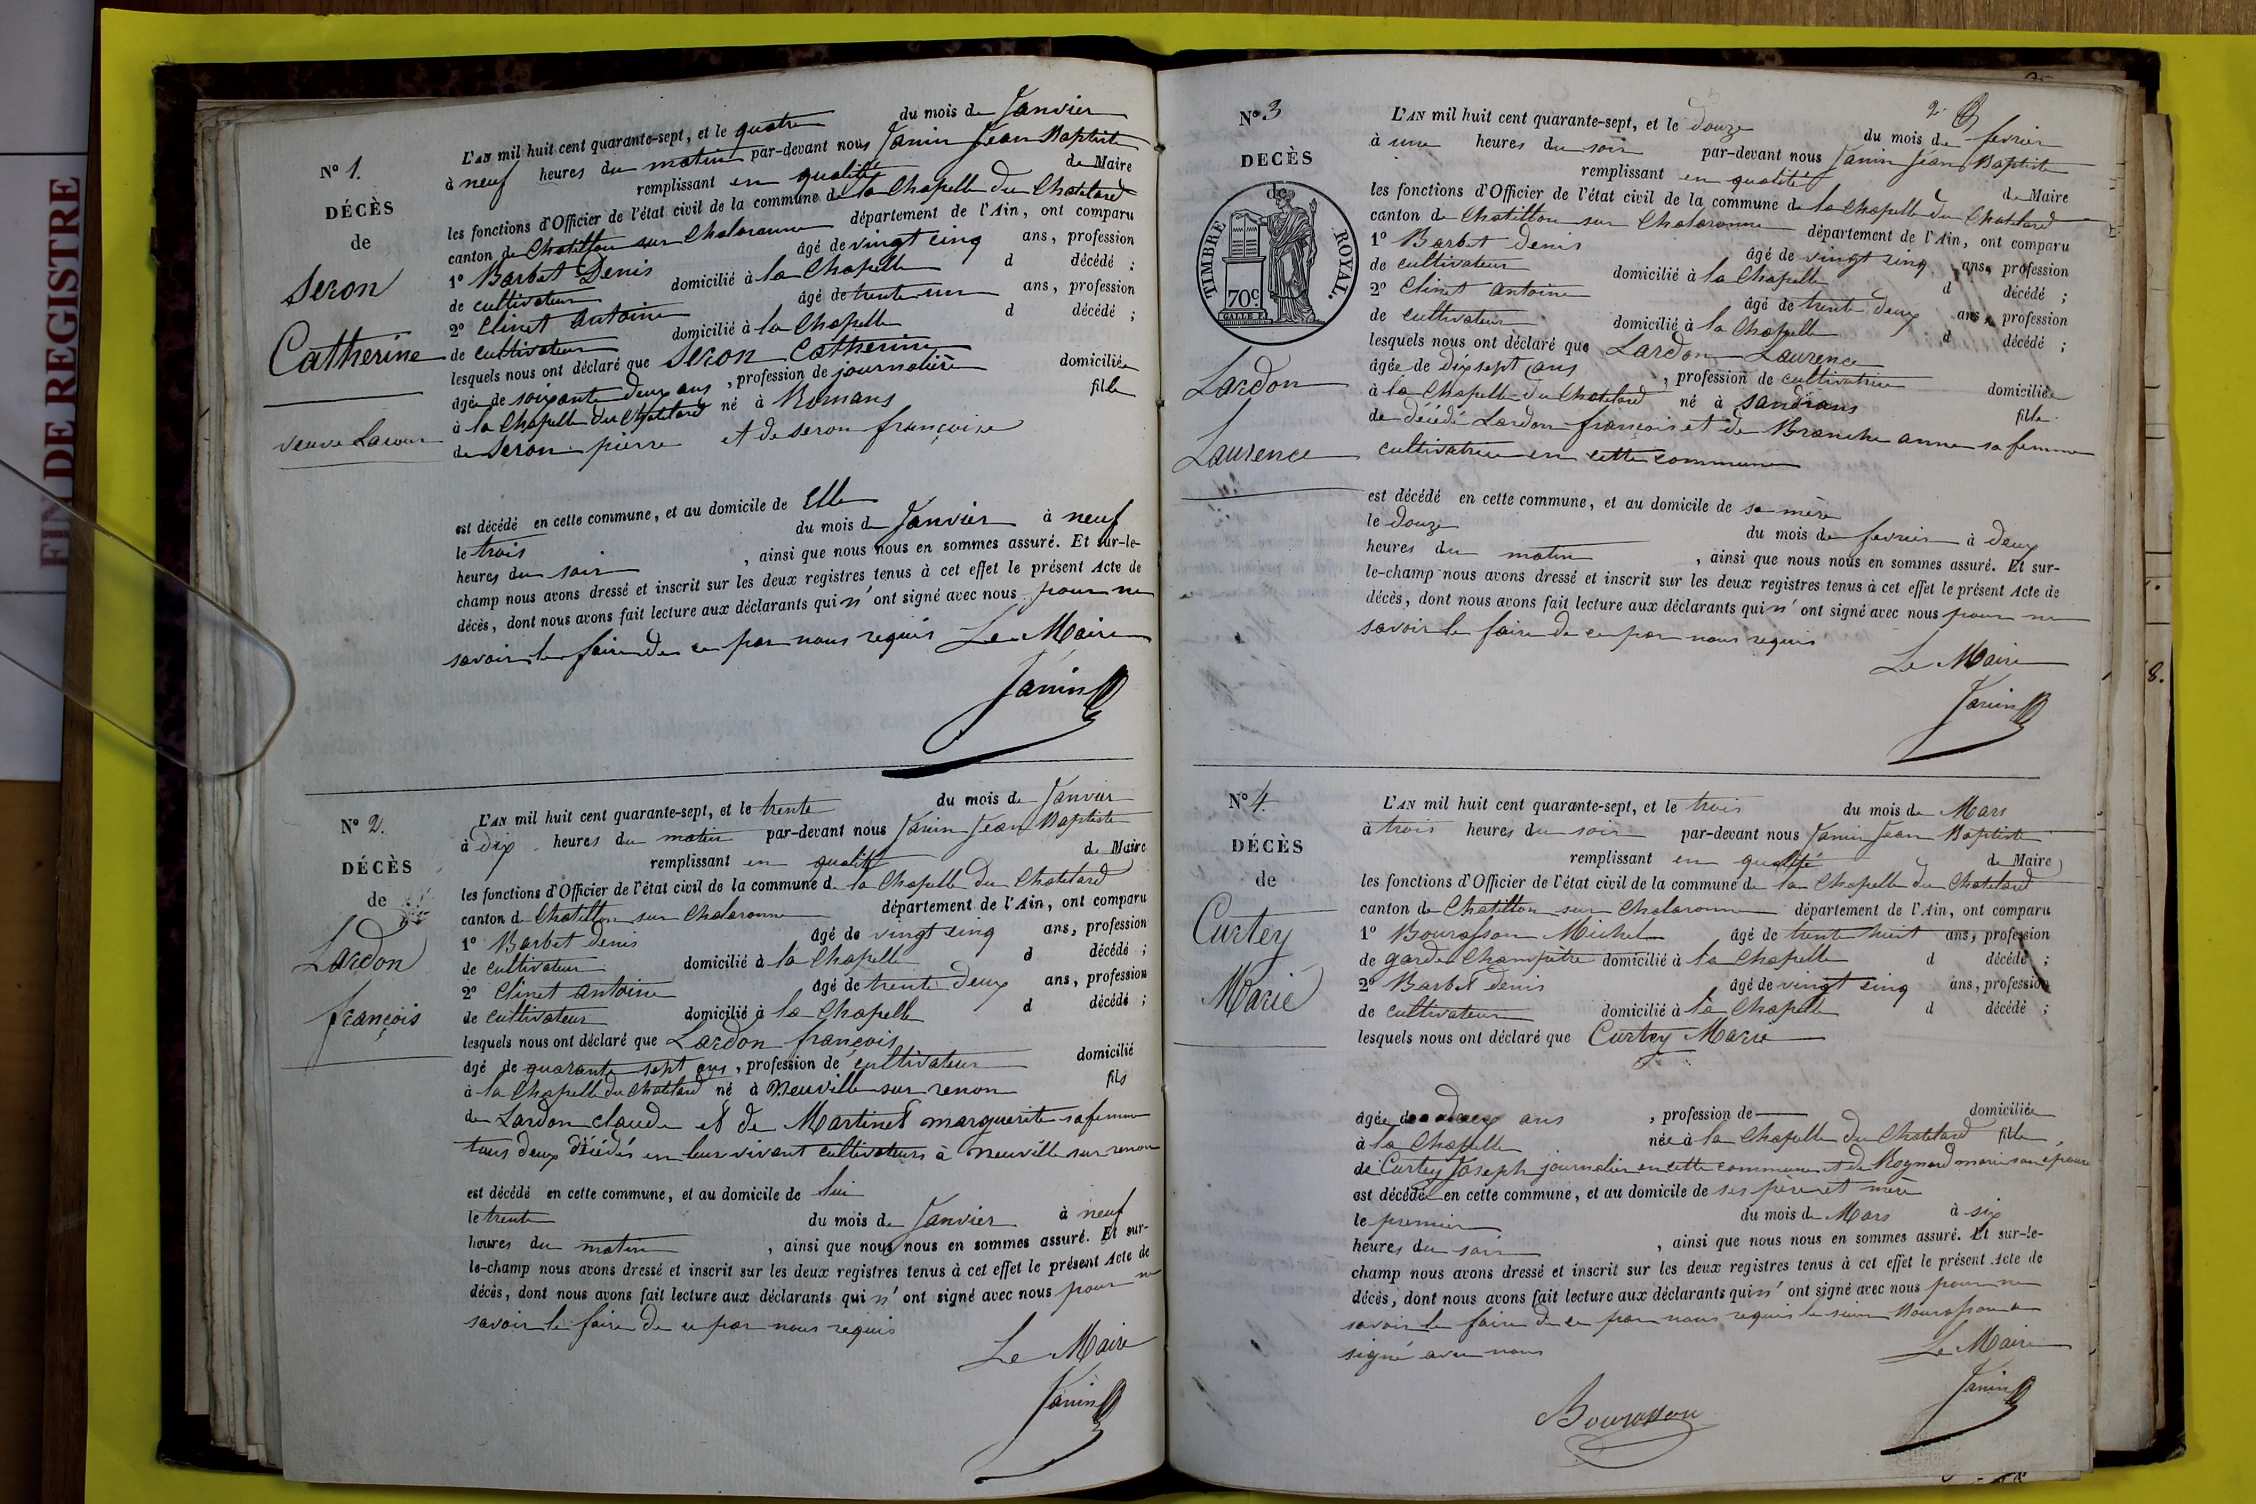 FIN DE REGISTRE
N° 1.
DÉCÈS
de
Seron
Catherine
veuve Lacour
L'AN mil huit cent quarante-sept, et le quatre du mois de Janvier
à neuf heures du matin par-devant nous Janin Jean Baptiste
remplissant en qualité de Maire
les fonctions d'Officier de l'état civil de la commune de la Chapelle du Chatelard
canton de Chatillon sur Chalaronne département de l'Ain, ont comparu
1° Barbet Denis âgé de vingt cinq ans, profession
de cultivateur domicilié à la Chapelle d décédé ;
2° Clinet antoine âgé de trente un ans, profession
de cultivateur domicilié à la Chapelle d décédé ;
lesquels nous ont déclaré que Seron Catherine
âgée de soixante deux ans, profession de journalière domiciliée
à la Chapelle du Chatelard né à Romans fille
de Seron pierre et de seron françoise
est décédé en cette commune, et au domicile de Elle
le trois du mois de Janvier à neuf
heures du soir, ainsi que nous nous en sommes assuré. Et sur-le-
champ nous avons dressé et inscrit sur les deux registres tenus à cet effet le présent Acte de
décès, dont nous avons fait lecture aux déclarants qui n'ont signé avec nous pour ne
savoir le faire de ce par nous requis Le Maire
Janin
N° 2.
DÉCÈS
de
Lardon
françois
L'AN mil huit cent quarante-sept, et le trente du mois de Janvier
à dix heures du matin par-devant nous Janin Jean Baptiste
remplissant en qualité de Maire
les fonctions d'Officier de l'état civil de la commune de la Chapelle du Chatelard
canton de Chatillon sur Chalaronne département de l'Ain, ont comparu
1° Barbet denis âgé de vingt cinq ans, profession
de cultivateur domicilié à la Chapelle d décédé ;
2° Clinet antoine âgé de trente deux ans, profession
de cultivateur domicilié à la Chapelle d décédé ;
lesquels nous ont déclaré que Lardon françois
âgé de quarante sept ans, profession de cultivateur domicilié
à la Chapelle du Chatelard né à Neuville sur renon fils
de Lardon claude et de Martinet marguerite sa femme
tous deux décédés en leur vivant cultivateurs à Neuville sur renon
est décédé en cette commune, et au domicile de lui
le trente du mois de Janvier à neuf
heures du matin, ainsi que nous nous en sommes assuré. Et sur-
le-champ nous avons dressé et inscrit sur les deux registres tenus à cet effet le présent Acte de
décès, dont nous avons fait lecture aux déclarants qui n'ont signé avec nous pour ne
savoir le faire de ce par nous requis
Le Maire
Janin
N° 3
DECÈS
de
TIMBRE ROYAL.
70c
Lardon
Laurence
L'AN mil huit cent quarante-sept, et le douze du mois de fevrier
à une heures du soir par-devant nous Janin Jean Baptiste
remplissant en qualité de Maire
les fonctions d'Officier de l'état civil de la commune de la Chapelle du Chatelard
canton de Chatillon sur Chalaronne département de l'Ain, ont comparu
1° Barbet Denis âgé de vingt cinq ans, profession
de cultivateur domicilié à la Chapelle d décédé ;
2° Clinet antoine âgé de trente deux ans, profession
de cultivateur domicilié à la Chapelle d décédé ;
lesquels nous ont déclaré que Lardon Laurence
âgée de dix sept ans, profession de cultivatrice domiciliée
à la Chapelle du Chatelard né à Sandrans fille
de décédé Lardon françois et de Branche anne sa femme
cultivatrice en cette commune
est décédé en cette commune, et au domicile de sa mère
le douze du mois de fevrier à deux
heures du matin, ainsi que nous nous en sommes assuré. Et sur-
le-champ nous avons dressé et inscrit sur les deux registres tenus à cet effet le présent Acte de
décès, dont nous avons fait lecture aux déclarants qui n'ont signé avec nous pour ne
savoir le faire de ce par nous requis
Le Maire
Janin
N° 4.
DÉCÈS
de
Curtey
Marie
L'AN mil huit cent quarante-sept, et le trois du mois de Mars
à trois heures du soir par-devant nous Janin Jean Baptiste
remplissant en qualité de Maire
les fonctions d'Officier de l'état civil de la commune de la Chapelle du Chatelard
canton de Chatillon sur Chalaronne département de l'Ain, ont comparu
1° Bourasson Michel âgé de trente huit ans, profession
de garde Champêtre domicilié à la Chapelle d décédé ;
2° Barbet denis âgé de vingt cinq ans, profession
de cultivateur domicilié à la Chapelle d décédé ;
lesquels nous ont déclaré que Curtey Marie
âgée de deux ans, profession de domiciliée
à la Chapelle née à la Chapelle du Chatelard fille
de Curtey Joseph journalier en cette commune et de Roynard marie son épouse
est décédé en cette commune, et au domicile de ses père et mère
le premier du mois de Mars à six
heures du soir, ainsi que nous nous en sommes assuré. Et sur-le-
champ nous avons dressé et inscrit sur les deux registres tenus à cet effet le présent Acte de
décès, dont nous avons fait lecture aux déclarants qui n'ont signé avec nous pour ne
savoir le faire de ce par nous requis le sieur Bourasson a
signé avec nous
Le Maire
Janin
Bourasson
8.